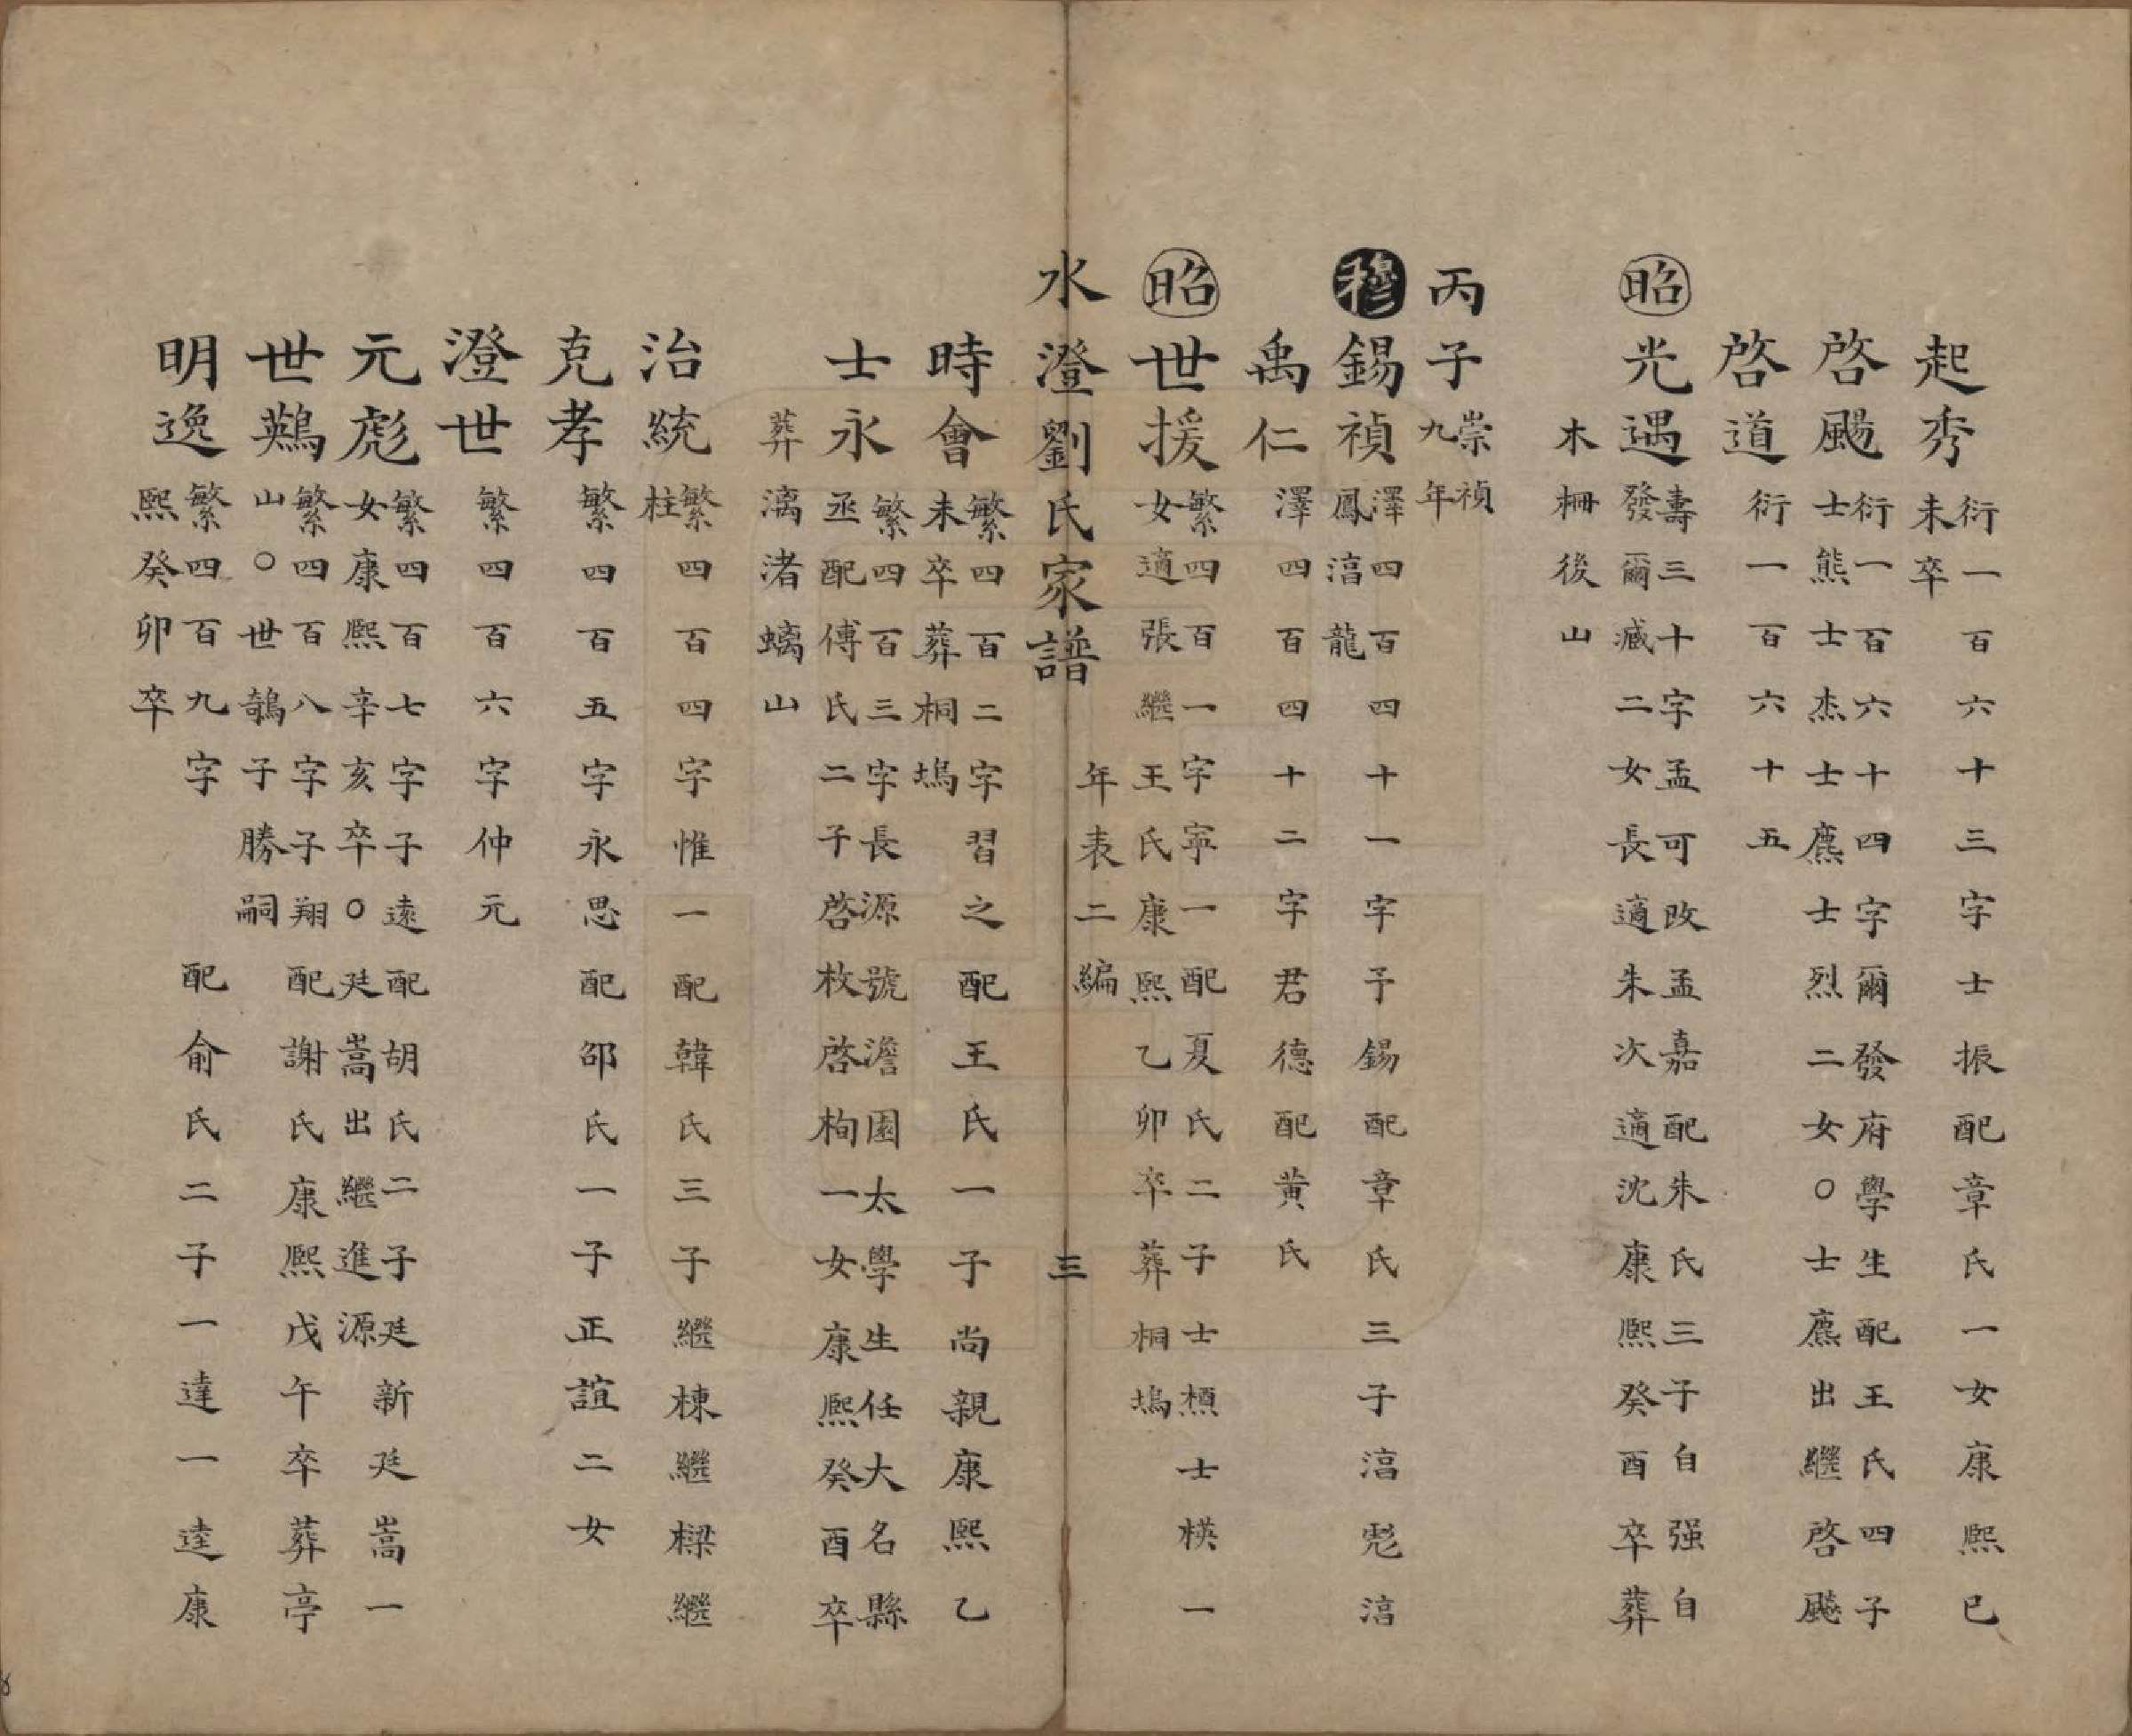 起秀 衍一百六十三字士振配章氏一女康熙己
未卒
啓颺 衍一百六十四字爾發府學生配王氏四子
士熊士杰士廌士烈二女○士廌出繼啓颷
啓道 衍一百六十五
昭 光遇 壽三十字孟可改孟嘉配朱氏三子自强自
發爾臧二女長適朱次適沈康熙癸酉卒葬
木柵後山
丙子 崇禎
九年
穆 錫禎 澤四百四十一字予錫配章氏三子湻彪湻
鳳湻龍
禹仁 澤四百四十二字君德配黄氏
昭 世援 繁四百一字寧一配夏氏二子士槚士楧一
女適張繼王氏康熙乙卯卒葬桐塢
水澄劉氏家譜 年表二編 三
時會 繁四百二字習之配王氏一子尚親康熙乙
未卒葬桐塢
士永 繁四百三字長源號澹園太學生任大名縣
丞配傅氏二子啓枚啓枸一女康熙癸酉卒
葬漓渚螭山
治統 繁四百四字惟一配韓氏三子繼棟繼樑繼
柱
克孝 繁四百五字永思配邵氏一子正誼二女
澄世 繁四百六字仲元
元彪 繁四百七字子遠配胡氏二子廷新廷嵩一
女康熙辛亥卒○廷嵩出繼進源
世鷬 繁四百八字子翔配謝氏康熙戊午卒葬亭
山○世鵨子勝嗣
明逸 繁四百九字 配俞氏二子一達一逵康
熙癸卯卒